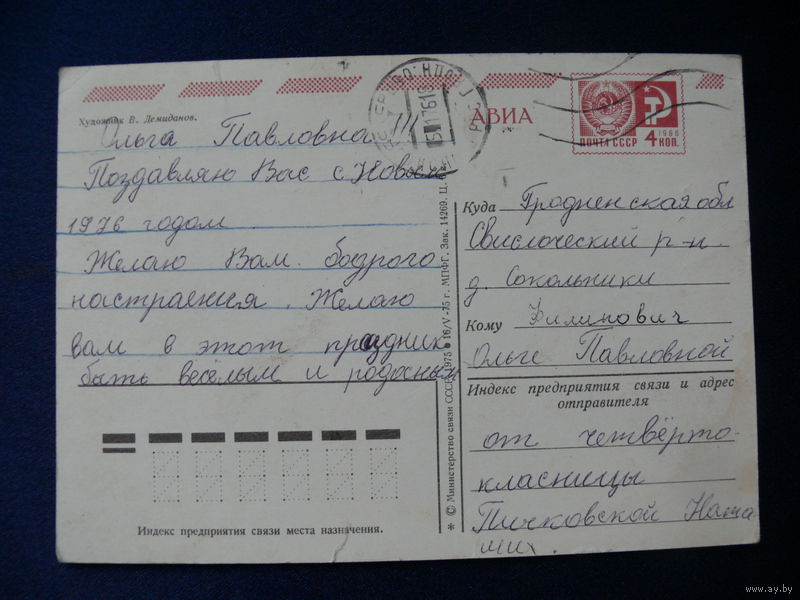 Художник В. Демиданов.
АВИА
ПОЧТА СССР
1966
4 КОП.
Ольга Павловна
Поздавляю Вас с Новом
1976 годом
Желаю Вам бодрого
настраения. Желаю
вам в этот праздник
быть весёлым и
Индекс предприятия связи места назначения.
* © Министерство связи СССР, 1975 ● 16/V-75 г. МПФГ. Зак. 14269. Ц. 4 к.
Куда Гродненская обл
Свислоческий р-н
д. Сокольники
Кому Филинович
Ольге Павловной
Индекс предприятия связи и адрес
отправителя
от четвёрто-
класницы
Пичковской Наташи
www.ay.by